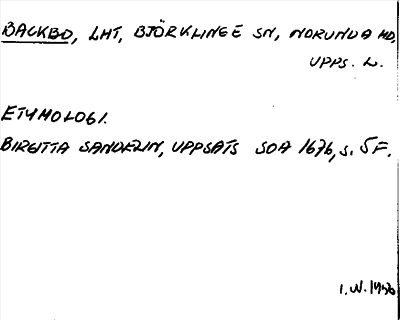 BACKBO, LHT, BJÖRKLINGE SN, NORUNDA HD,
UPPS. L.
ETYMOLOGI.
BIRGITTA SANDELIN, UPPSATS SOA 1676, s. 5 F.
I. W. 1956